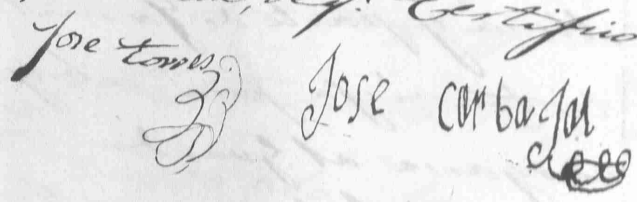 Certifico
Jose torres
Jose Carbajal